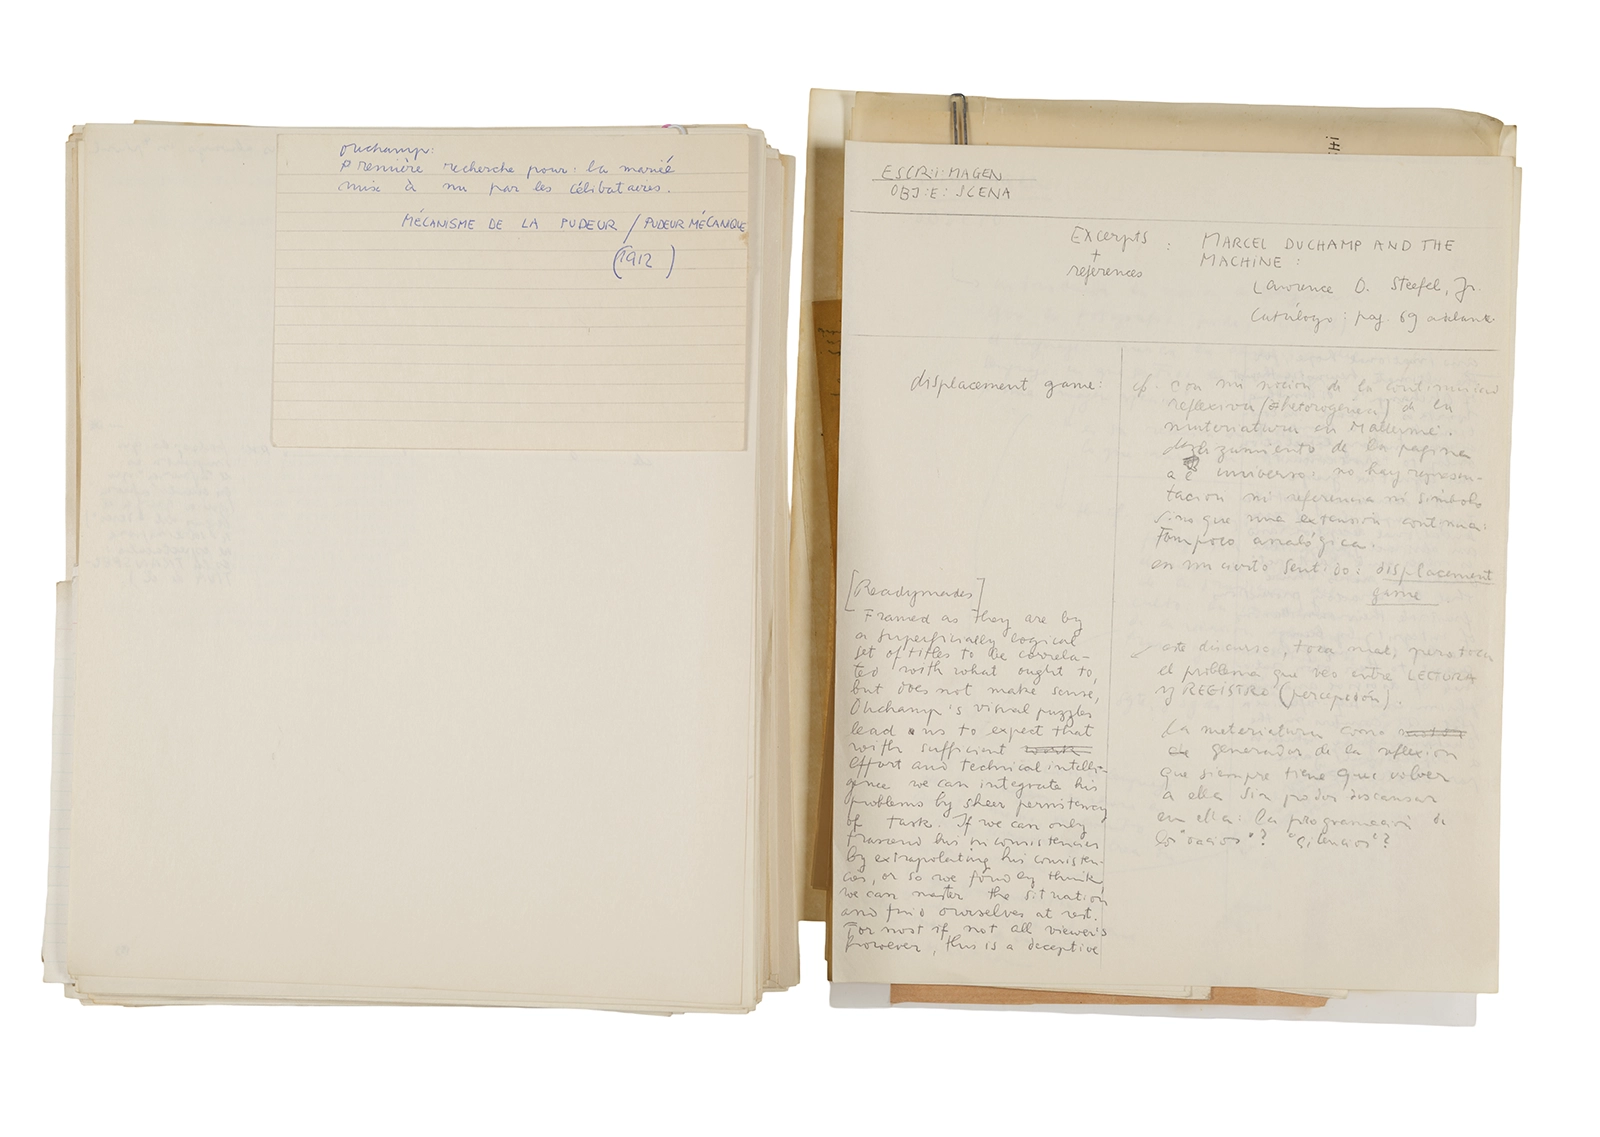 Duchamp:
Première recherche pour: la marié
mise à nu par les célibataires.
MÉCANISME DE LA PUDEUR / PUDEUR MÉCANIQUE
(1912)
ESCRI:MAGEN
OBJ:E:SCENA
Excerpts + references : MARCEL DUCHAMP AND THE
MACHINE :
Lawrence D. Steefel, Jr.
Catálogo: pag. 69 adelante
displacement game:
cf. con mi nocion de la continuidad
reflexiva ( ) de la
materiatura en Mallarmé.
desplazamiento de la pagina
a universo: no hay represen-
tacion ni referencia ni simbolo
sino que una extensión continua:
Tampoco analógica.
en un cierto sentido: displacement
game
este discurso, toca mal, pero toca
el problema que veo entre LECTURA
y REGISTRO (percepción).
La materiatura como
generador de la reflexion
que siempre tiene que volver
a ella sin poder descansar
en ella: la programación de
los "vacios"? "silencios"?
[Readymades]
Framed as they are by
a superficially logical
set of titles to be correla-
ted with what ought to,
but does not make sense,
Duchamp's visual puzzles
lead us to expect that
with sufficient
effort and technical intelli-
gence we can integrate his
problems by sheer persistency
of task. If we can only
trascend his inconsistencies
by extrapolating his consisten-
cies, or so we fondly think,
we can master the situation
and find ourselves at rest.
For most if not all viewer's
however, this is a deceptive